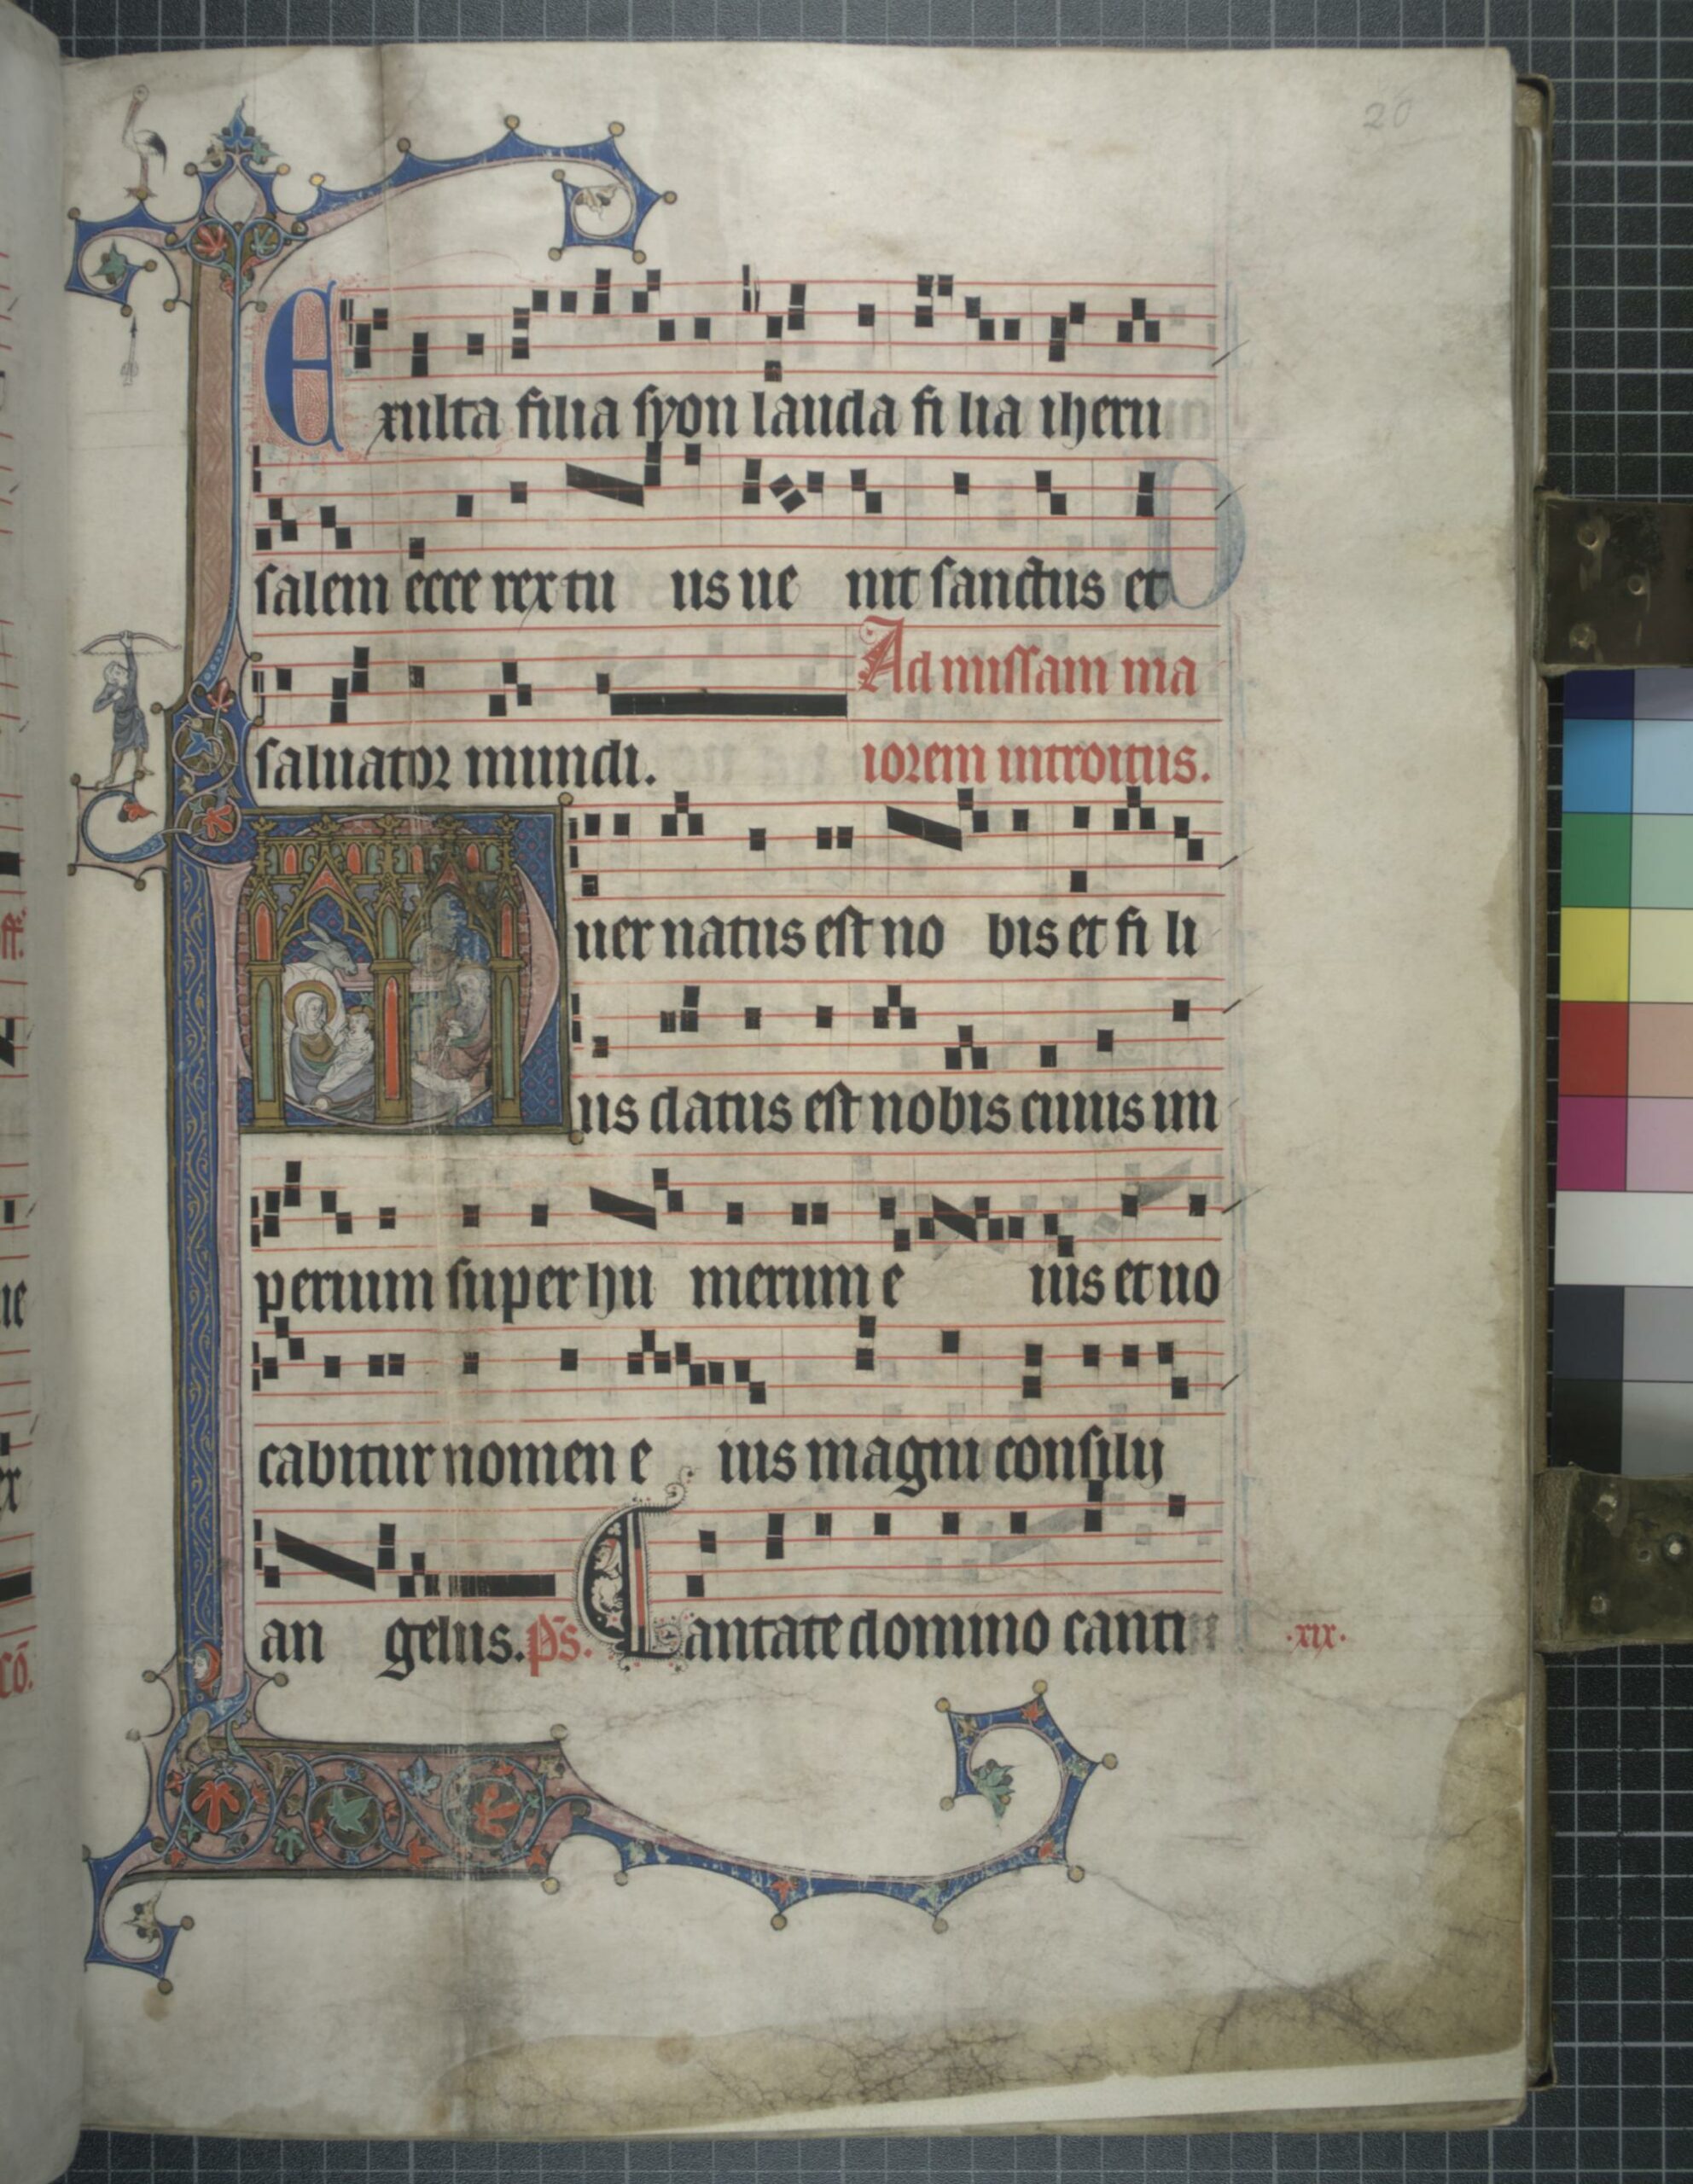 20
Exulta filia syon lauda fi lia iheru
salem ecce rex tu us ue nit sanctus et
Ad missam ma
saluator mundi. iorem introitus.
Puer natus est no bis et fi li
us datus est nobis cuius im
perium super hu merum e ius et uo
cabitur nomen e ius magni consilij
an gelus. ps. Cantate domino canti
.xix.